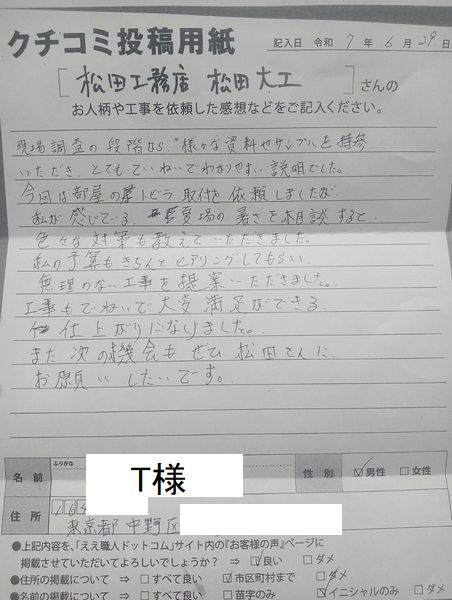 クチコミ投稿用紙
記入日 令和 7 年 6 月 29 日
[松田工務店 松田大工] さんの
お人柄や工事を依頼した感想などをご記入ください。
現場調査の段階から、様々な資料やサンプルを持参
いただき、とてもていねいでわかりやすい説明でした。
今回は部屋の扉トビラ取付を依頼しましたが
私が感じている、夏場の暑さを相談すると、
色々な対策も教えていただきました。
私の予算もきちんとヒアリングしてもらい
無理のない工事を提案いただきました。
工事もていねいで大変満足ができる
仕上がりになりました。
また次の機会もぜひ松田さんに
お願いしたいです。
ふりがな
名前 T様 性別 ☑男性 □女性
住所
東京都中野区
●上記内容を、「ええ職人ドットコム」サイト内の『お客様の声』ページに
掲載させていただいてよろしいでしょうか? ☑良い □ダメ
●住所の掲載について ⇒ □すべて良い ☑市区町村まで □ダメ
●名前の掲載について ⇒ □すべて良い □苗字のみ ☑イニシャルのみ □ダメ